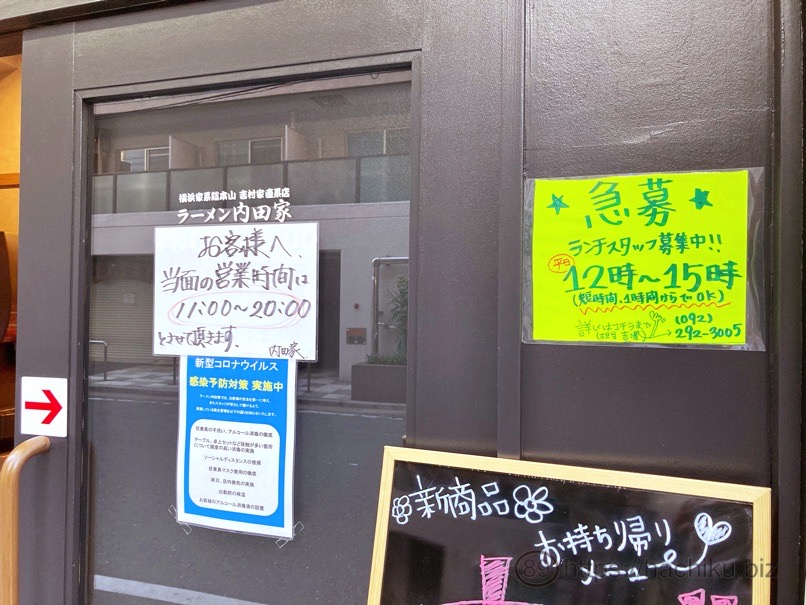 横浜家系総本山 吉村家直系店
ラーメン内田家
お客様へ、
当面の営業時間は
11:00〜20:00
とさせて頂きます。
内田家
新型コロナウイルス
感染予防対策 実施中
従業員の手洗い、アルコール消毒の徹底
テーブル、卓上セットなど接触が多い箇所
について頻度の高い消毒の実施
ソーシャルディスタンスの推奨
従業員マスク着用の徹底
終日、店内換気の実施
出勤前の検温
お客様のアルコール消毒液の設置
急募
ランチスタッフ募集中!!
平日
12時〜15時
(短時間、1時間からでもOK)
詳しくはコチラまで
(092)
292-3005
新商品
お持ち帰り
メニュー
https://hachiku.biz